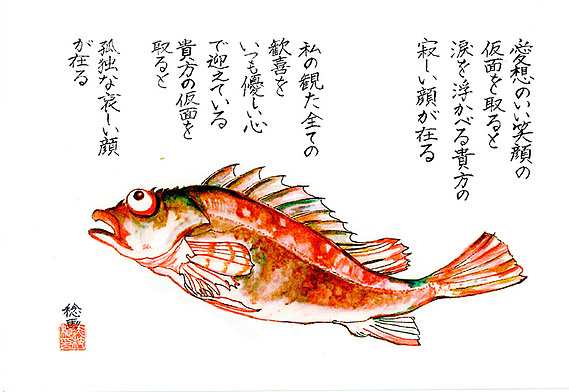 愛想のいい笑顔の
仮面を取ると
涙を浮かべる貴方の
寂しい顔が在る
私の観た全ての
歓喜を
いつも優しい心
で迎えている
貴方の仮面を
取ると
孤独な哀しい顔
が在る